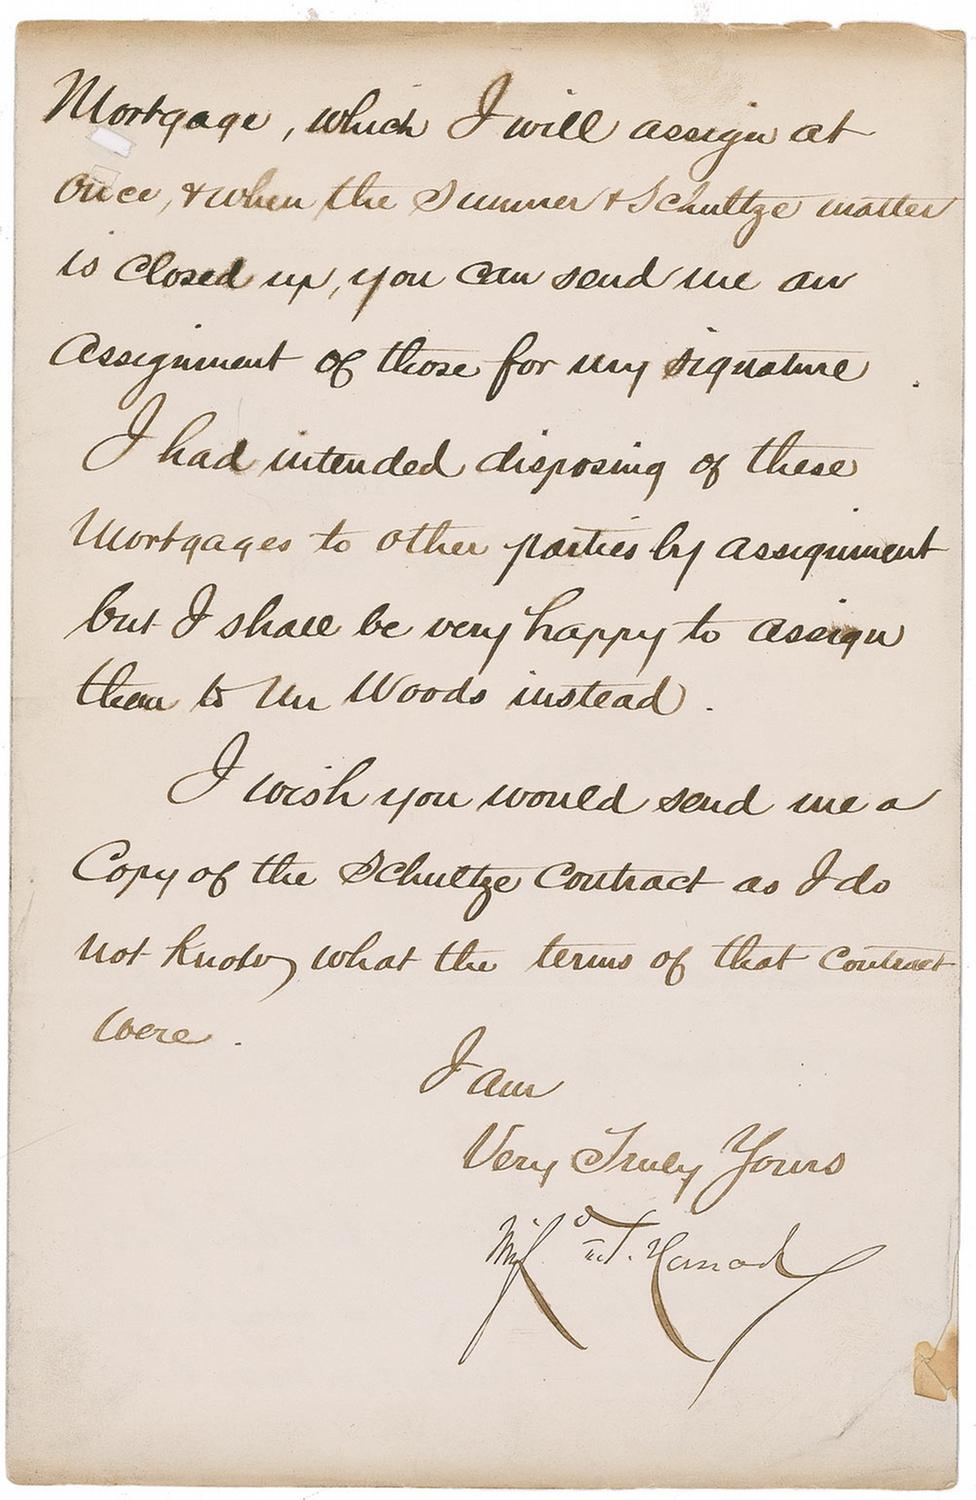 Mortgage, which I will assign at
once, & when the Sumner & Schultze matter
is closed up, you can send me an
assignment of those for my signature.
I had intended disposing of these
Mortgages to other parties by assignment
but I shall be very happy to assign
them to Mr Woods instead.
I wish you would send me a
Copy of the Schultze Contract as I do
not know what the terms of that Contract
were.
I am
Very Truly Yours